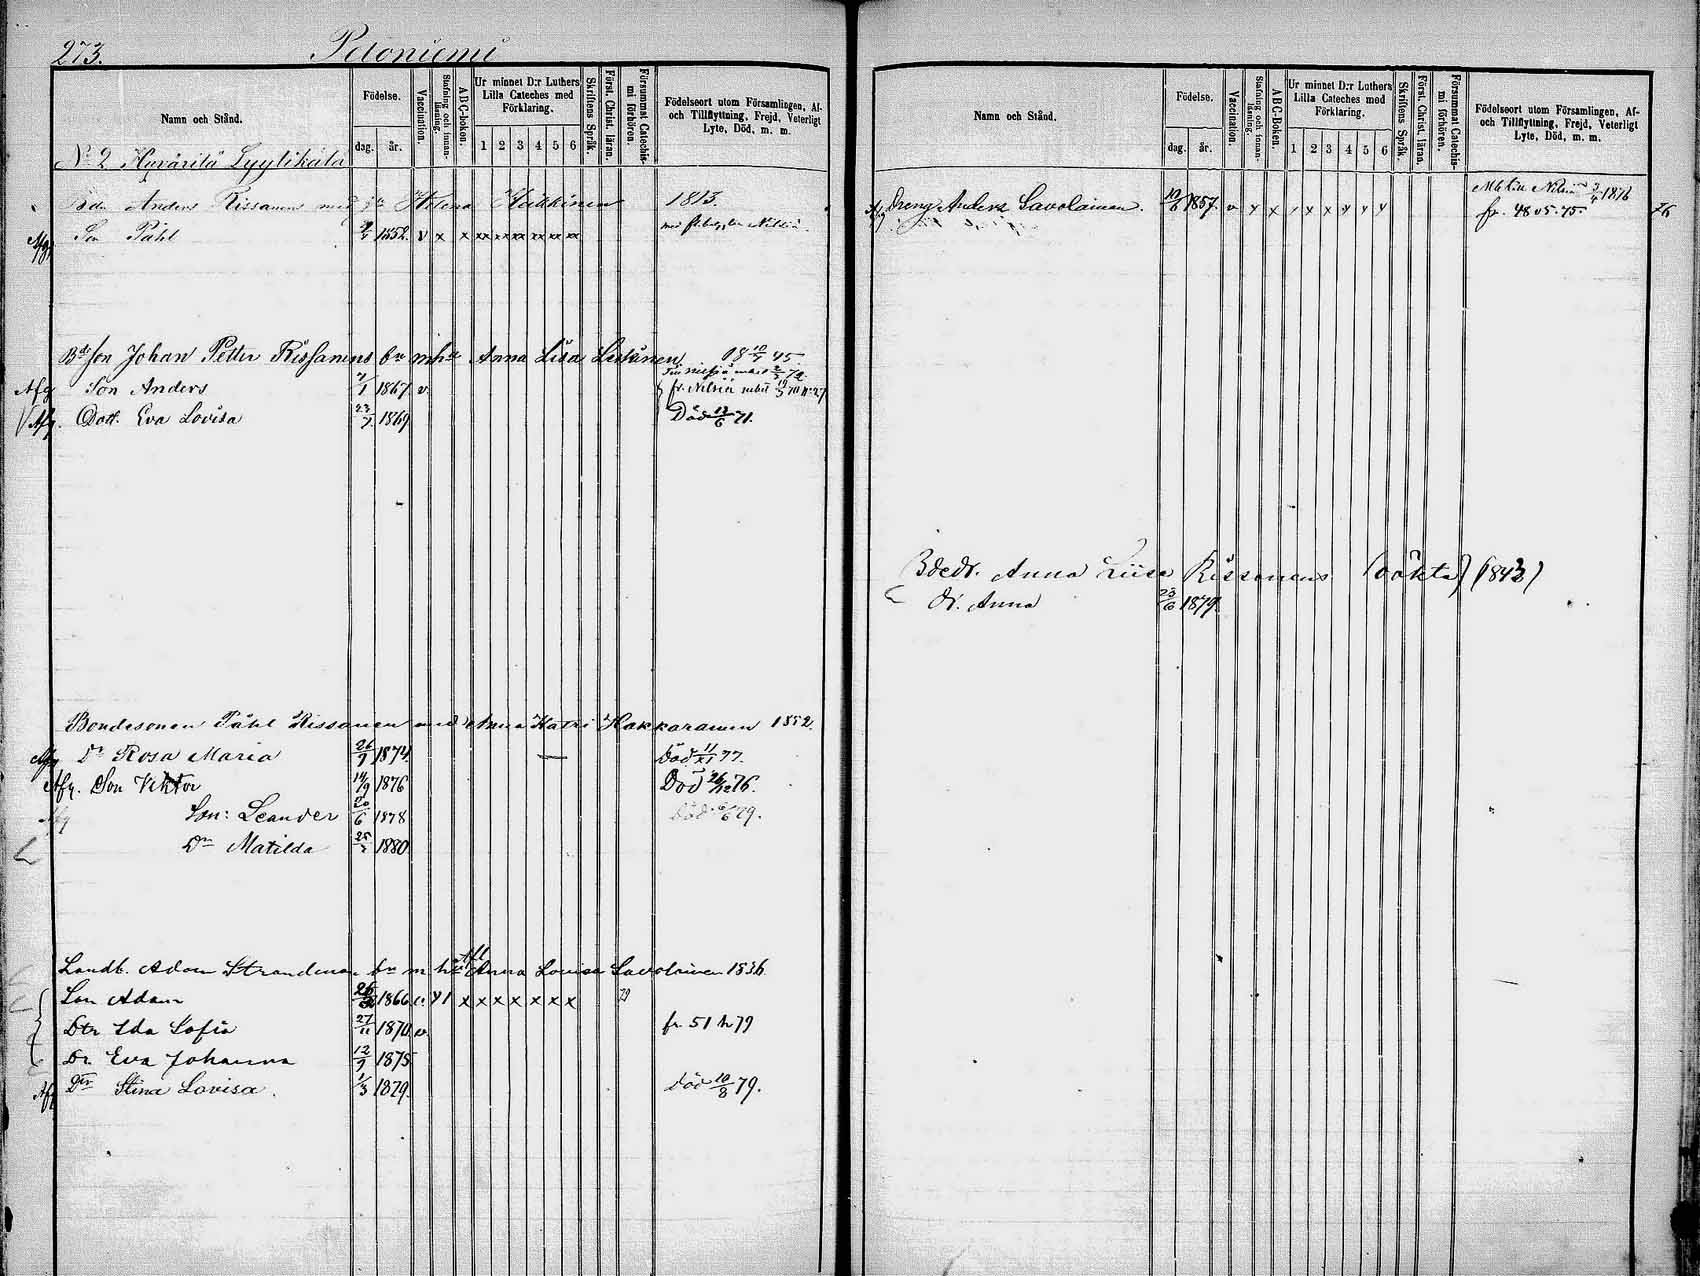 273. Petoniemi
Namn och Stånd.
Födelse.
dag. år.
Vaccination.
Stafning och innan-läsning.
ABC-boken.
Ur minnet D:r Luthers
Lilla Cateches med
Förklaring.
1 2 3 4 5 6
Skriftens Språk.
Först. Christ. läran.
Försummat Catechis-
mi förhören.
Födelseort utom Församlingen, Af-
och Tillflyttning, Frejd, Veterligt
Lyte, Död, m. m.
No 2 Lyytikälä
Anders Rissanens Helena Häkkinen 1813.
Afg. Son Påhl 1852. v x x xx xx xx xx xx xx
Bd son Johan Petter Rissanens Anna Lisa Leskinen 18 10/7 45.
Afg Son Anders 7/1 1867. v. fr. Nilsiä
Afg. Dott. Eva Lovisa 23/7 1869 Död 12/6 71.
Bondesonen Påhl Rissanen med Anna Katri Hakkarainen 1852.
Afg Dr Rosa Maria 26/9 1874. — Död 11/XI 77.
Afg. Son Viktor 14/9 1876 Död 26/12 76.
Afg Son: Leander 20/6 1878 Död 79.
Dr Matilda 1880
Landb. Adam Strandman Anna Lovisa Savolainen 1836.
Son Adam 1866. x x x x x x x 79
Dtr Ida Sofia 27/11 1870. v. fr. 51 79
Dr. Eva Johanna 12/9 1875
Afg Dtr Stina Lovisa. 1/3 1879. Död 10/8 79.
Namn och Stånd.
Födelse.
dag. år.
Vaccination.
Stafning och innan-läsning.
ABC-Boken.
Ur minnet D:r Luthers
Lilla Cateches med
Förklaring.
1 2 3 4 5 6
Skriftens Språk.
Först. Christ. läran.
Försummat Catechis-
mi förhören.
Födelseort utom Församlingen, Af-
och Tillflyttning, Frejd, Veterligt
Lyte, Död, m. m.
Mb till Nilsiä 1876
Afg Dreng Anders Savolainen. 19/6 1857. v x x x x x x x fr. 48 05. 75. 76
Bdedr. Anna Liisa Rissanens (oäkta)
dr. Anna 23/6 1879.